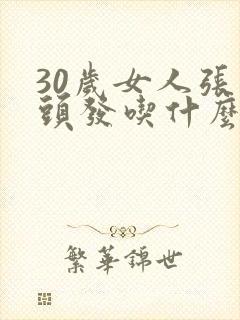 30歲女人張
頭發喫什麼
繁華錦世